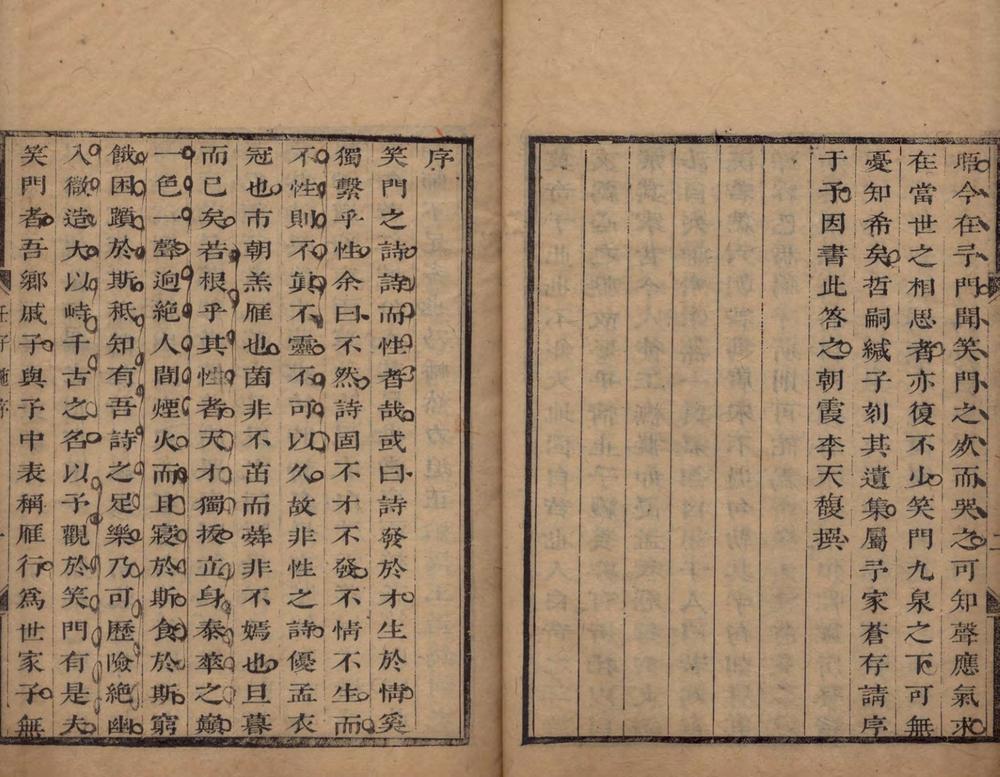 瑉今在予門聞笑門之歿而哭之可知聲應氣求
在當世之相思者亦復不少笑門九泉之下可無
憂知希矣哲嗣緘子刻其遺集屬予家蒼存請序
于予因書此答之朝霞李天馥撰
序
笑門之詩詩而性者哉或曰詩發於才生於情奚
獨繫乎性余曰不然詩固不才不發不情不生而
不性則不眞不靈不可以久故非性之詩優孟衣
冠也市朝羔雁也菌非不茁而蕣非不嫣也旦暮
而已矣若根乎其性者天才獨抜立身泰華之巔
一色一聲迥絕人間煙火而且寢於斯食於斯窮
餓困躓於斯秪知有吾詩之足樂乃可歷險絕幽
入微造大以峙千古之名以予觀於笑門有是夫
笑門者吾鄉戚子與予中表稱雁行爲世家子無